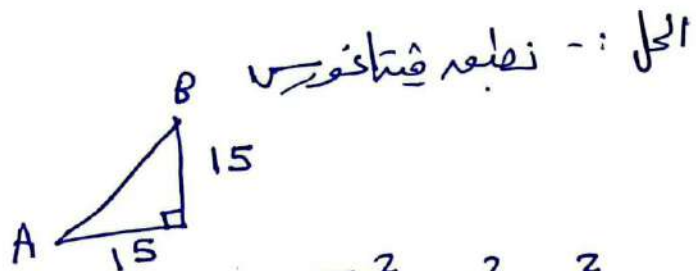 الحل :- نطبق فيتاغورس
B
15
A
15
2 2 2